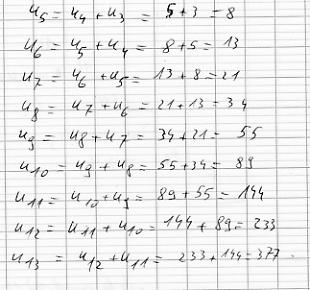 u₅ = u₄ + u₃ = 5 + 3 = 8
u₆ = u₅ + u₄ = 8 + 5 = 13
u₇ = u₆ + u₅ = 13 + 8 = 21
u₈ = u₇ + u₆ = 21 + 13 = 34
u₉ = u₈ + u₇ = 34 + 21 = 55
u₁₀ = u₉ + u₈ = 55 + 34 = 89
u₁₁ = u₁₀ + u₉ = 89 + 55 = 144
u₁₂ = u₁₁ + u₁₀ = 144 + 89 = 233
u₁₃ = u₁₂ + u₁₁ = 233 + 144 = 377.